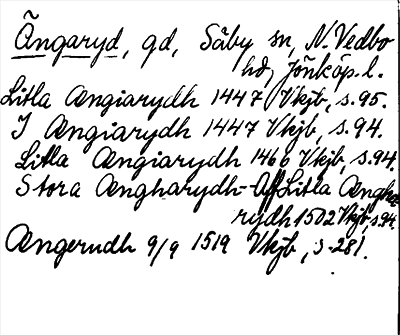 Ängaryd, gd, Säby sn, N. Vedbo
hd, Jönköp. l.
Litla Ængiarydh 1447 Vkjb, s. 95.
J Ængiarydh 1447 Vkjb, s. 94.
Litla Ængiarydh 1466 Vkjb, s. 94.
Stora Ængharydh - Aff Litla Ængha
rydh 1502 Vkjb, s. 94.
Ængerudh 9/9 1519 Vkjb, s- 281.